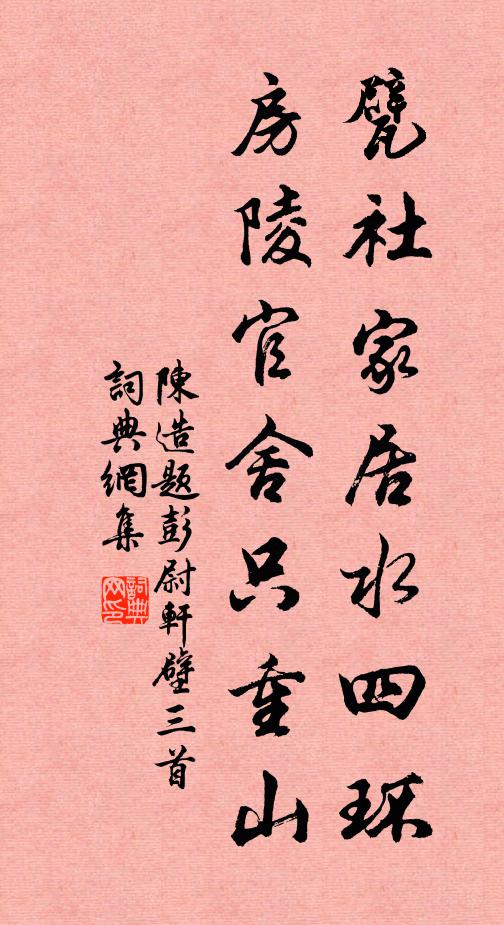 甓社家居水四环
房陵官舍只重山
陳造題彭尉軒壁三首
詞典網集
詞典
网印